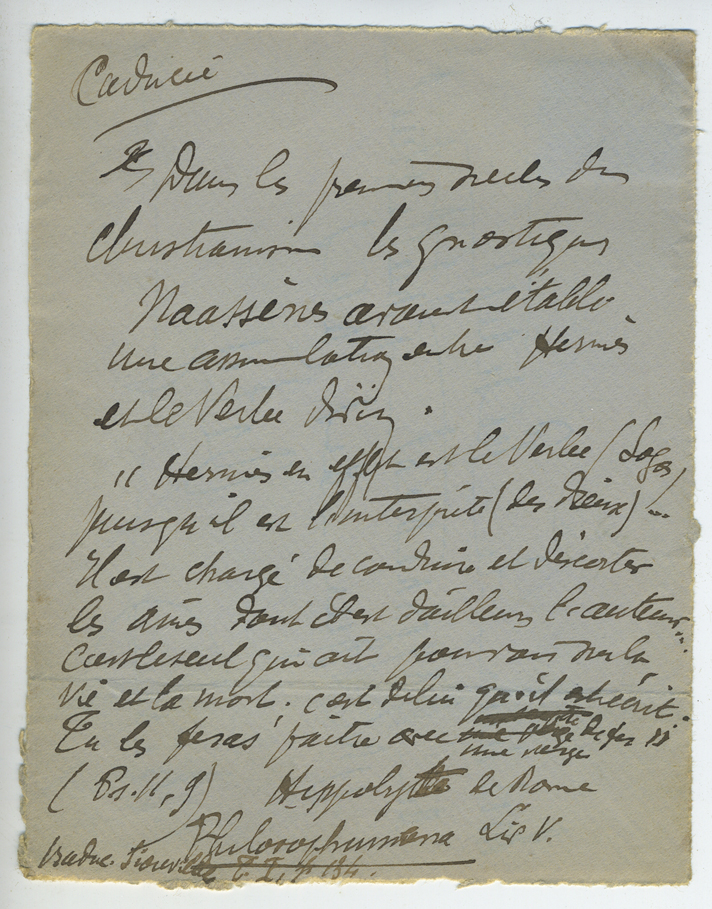 Caducée
Dans les premiers siecles du
christianisme les gnostiques
Naassènes avaient établi
une assimilation entre Hermès
et le Verbe divin.
" Hermès en effet est le Verbe (Logos)
puisqu'il est l'interprète (des Dieux)...
Il est chargé de conduire et d'escorter
les ames dont il est d'ailleurs l'auteur...
C'est le seul qui ait pouvoir sur la
vie et la mort. c'est de lui qu'il est écrit.
Tu les feras paître avec une verge de fer "
(Ps. II, 9) Hippolyte de Rome
Philosophumena Liv V.
traduc. Siouville T. I, p 134.